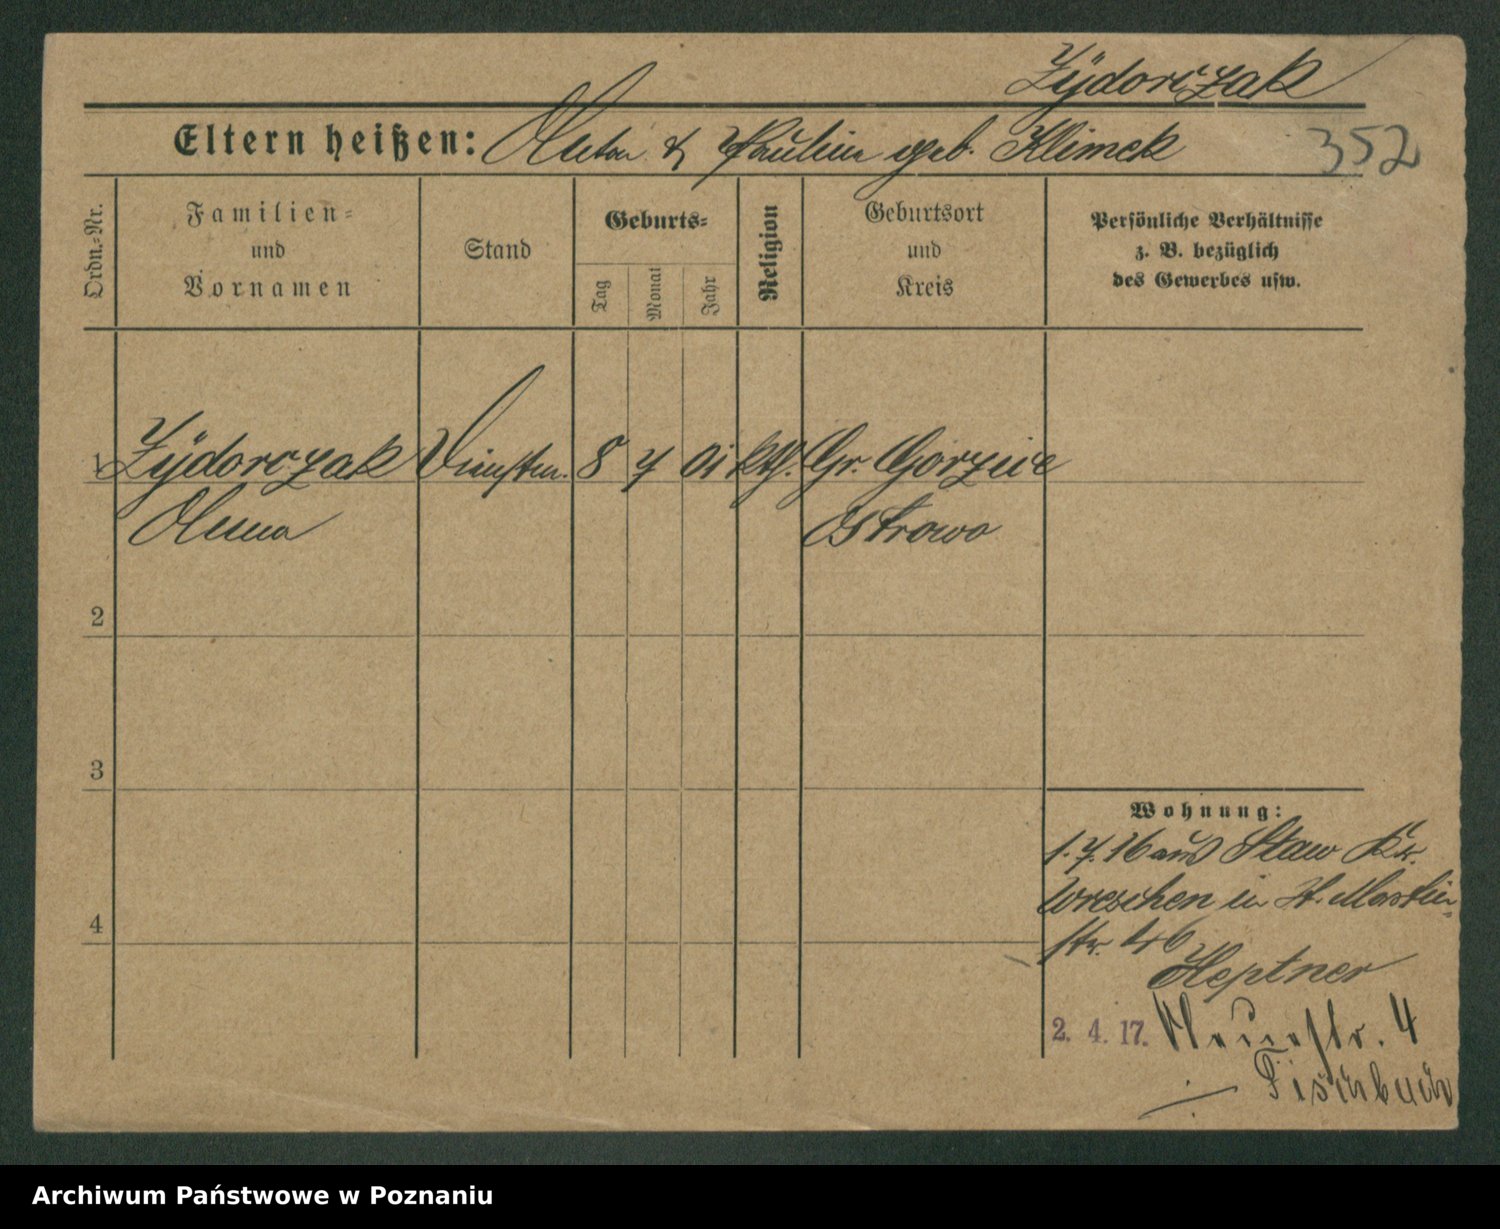 Zÿdorczak
Eltern heißen: Anton & Paulina geb. Klimek
352
Ordn.-Nr.
Familien-
und
Vornamen
Stand
Geburts-
Tag
Monat
Jahr
Religion
Geburtsort
und
Kreis
Persönliche Verhältnisse
z. B. bezüglich
des Gewerbes usw.
1 Zÿdorczak Dienstm. 8 7 01 kth. Gr. Gorzuie
Anna Ostrowo
2
3
4
Wohnung:
1.7.16 aus Staw Kr.
Wreschen in St. Martin-
str. 46
Heptner
2. 4. 17. Neuestr. 4
Fischbach
Archiwum Państwowe w Poznaniu